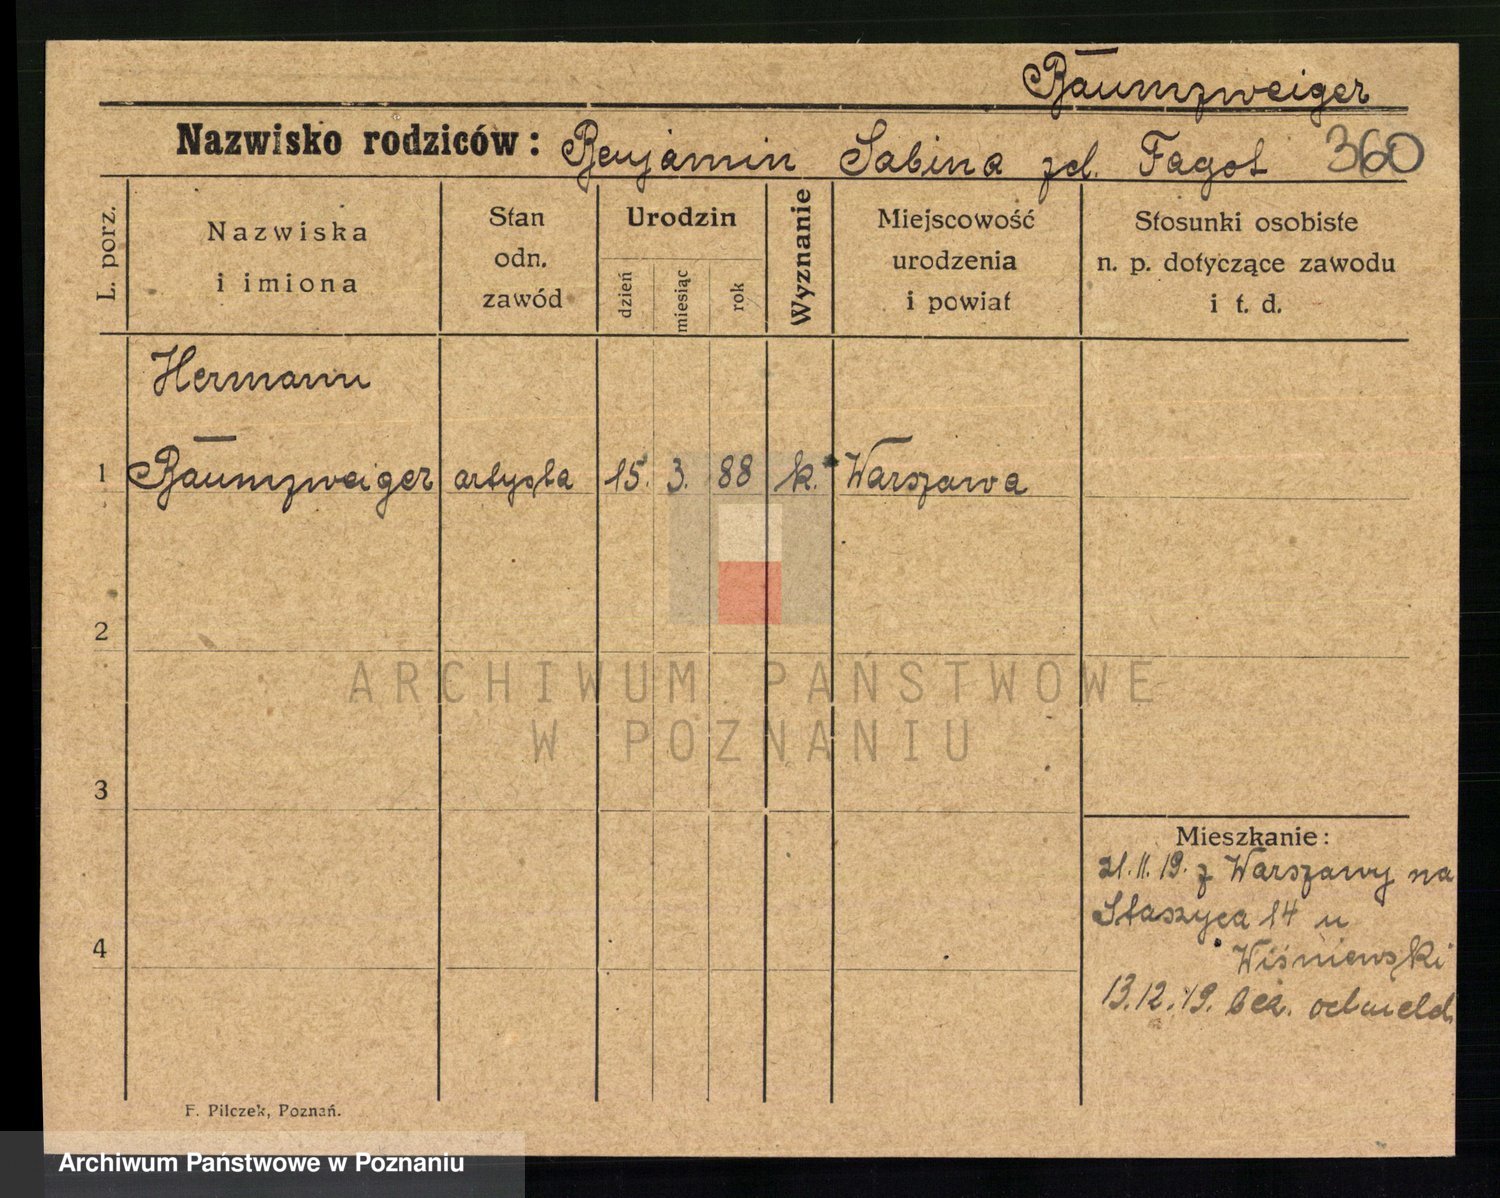 Baumzweiger
Nazwisko rodziców: Benjamin Sabina zd. Fagot 360
L. porz.
Nazwiska
i imiona
Stan
odn.
zawód
Urodzin
dzień
miesiąc
rok
Wyznanie
Miejscowość
urodzenia
i powiat
Stosunki osobiste
n. p. dotyczące zawodu
i t. d.
Hermann
1 Baumzweiger artysta 15. 3. 88 k. Warszawa
2
ARCHIWUM PAŃSTWOWE
W POZNANIU
3
Mieszkanie:
21.11.19. z Warszawy na
Staszyca 14 u
4
Wiśniewski
13.12.19. bez. odmeld.
F. Pilczek, Poznań.
Archiwum Państwowe w Poznaniu